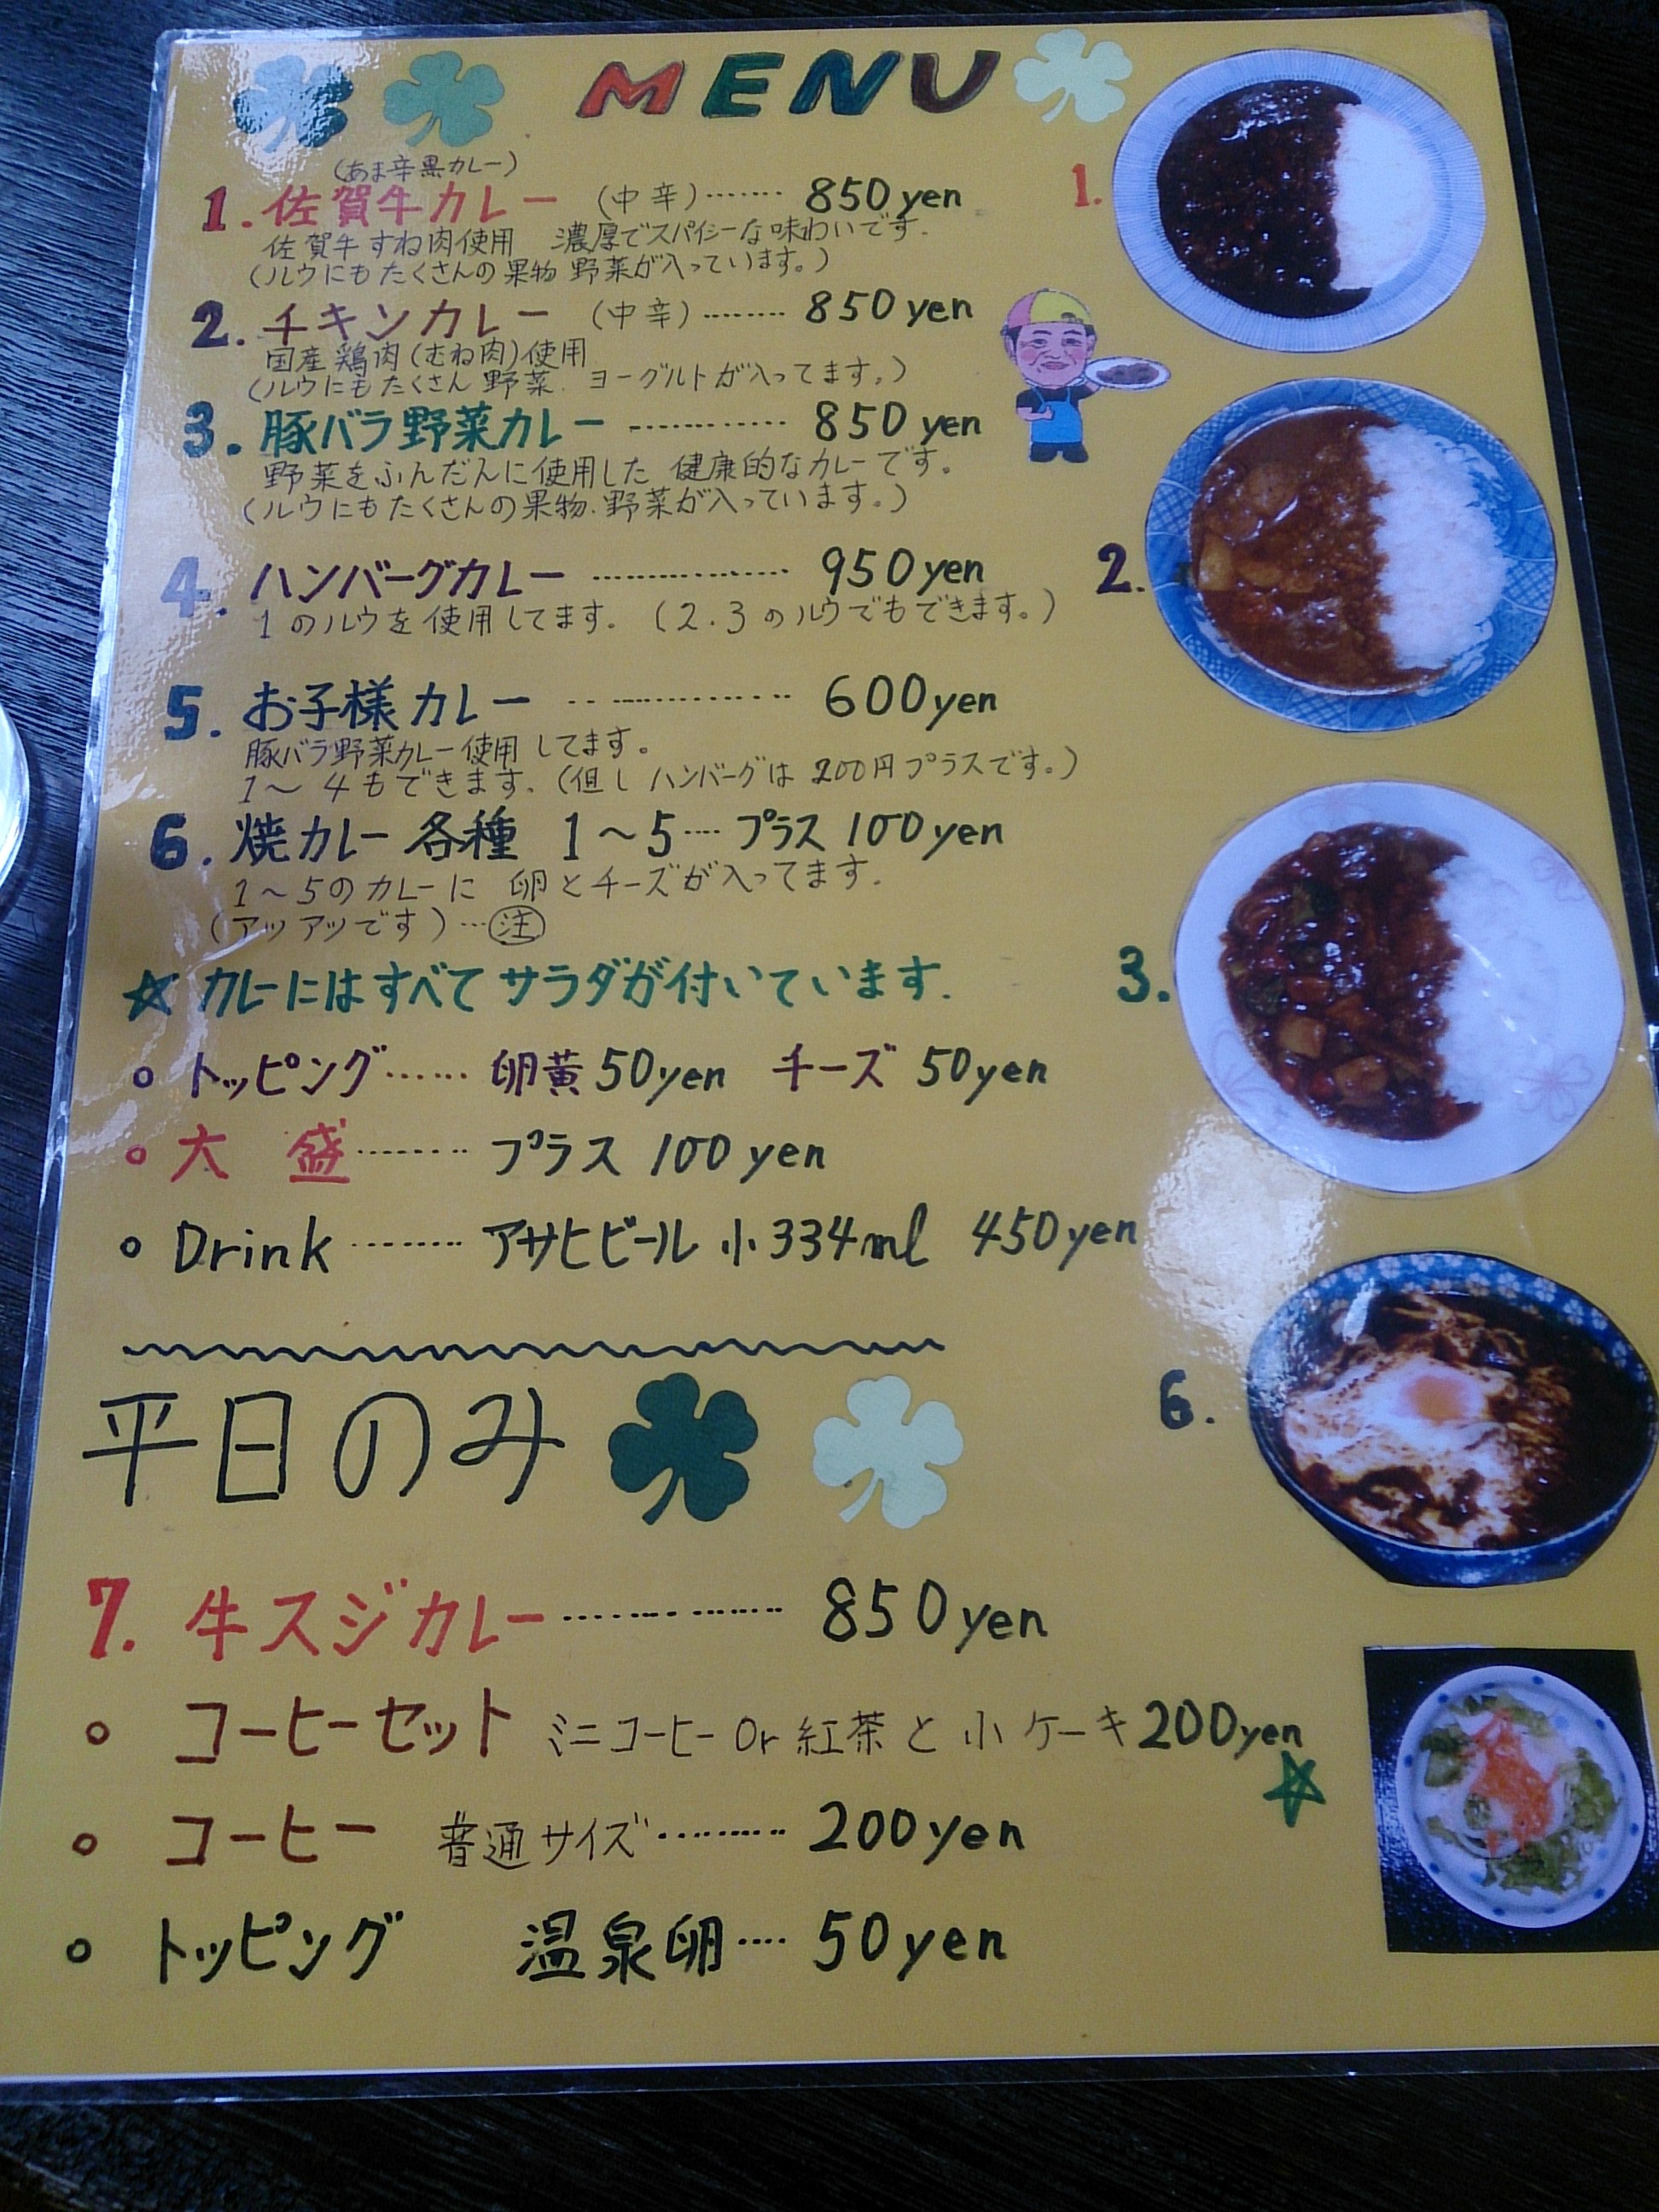 MENU
(あま辛黒カレー)
1. 佐賀牛カレー (中辛)‥‥‥ 850yen
佐賀牛すね肉使用 濃厚でスパイシーな味わいです.
(ルウにもたくさんの果物 野菜が入っています。)
2. チキンカレー (中辛)‥‥‥ 850yen
国産鶏肉(むね肉)使用
(ルウにもたくさん野菜. ヨーグルトが入ってます。)
3. 豚バラ野菜カレー ‥‥‥‥‥ 850yen
野菜をふんだんに使用した 健康的なカレーです。
(ルウにもたくさんの果物.野菜が入っています。)
4. ハンバーグカレー ‥‥‥‥‥ 950yen
1のルウを使用してます. (2.3のルウでもできます。)
5. お子様カレー ‥‥‥‥‥ 600yen
豚バラ野菜カレー使用してます。
1〜4もできます. (但しハンバーグは200円プラスです。)
6. 焼カレー各種 1〜5‥‥プラス100yen
1〜5のカレーに 卵とチーズが入ってます.
(アッアッです)‥㊟
☆ カレーにはすべてサラダが付いています.
○ トッピング‥‥‥ 卵黄50yen チーズ 50yen
○ 大 盛‥‥‥‥ プラス 100yen
○ Drink‥‥‥‥ アサヒビール 小334ml 450yen
平日のみ
7. 牛スジカレー‥‥‥‥‥ 850yen
○ コーヒーセット ミニコーヒー Or 紅茶と小ケーキ200yen
○ コーヒー 普通サイズ‥‥‥‥ 200yen
○ トッピング 温泉卵‥‥ 50yen
1.
2.
3.
6.
☆